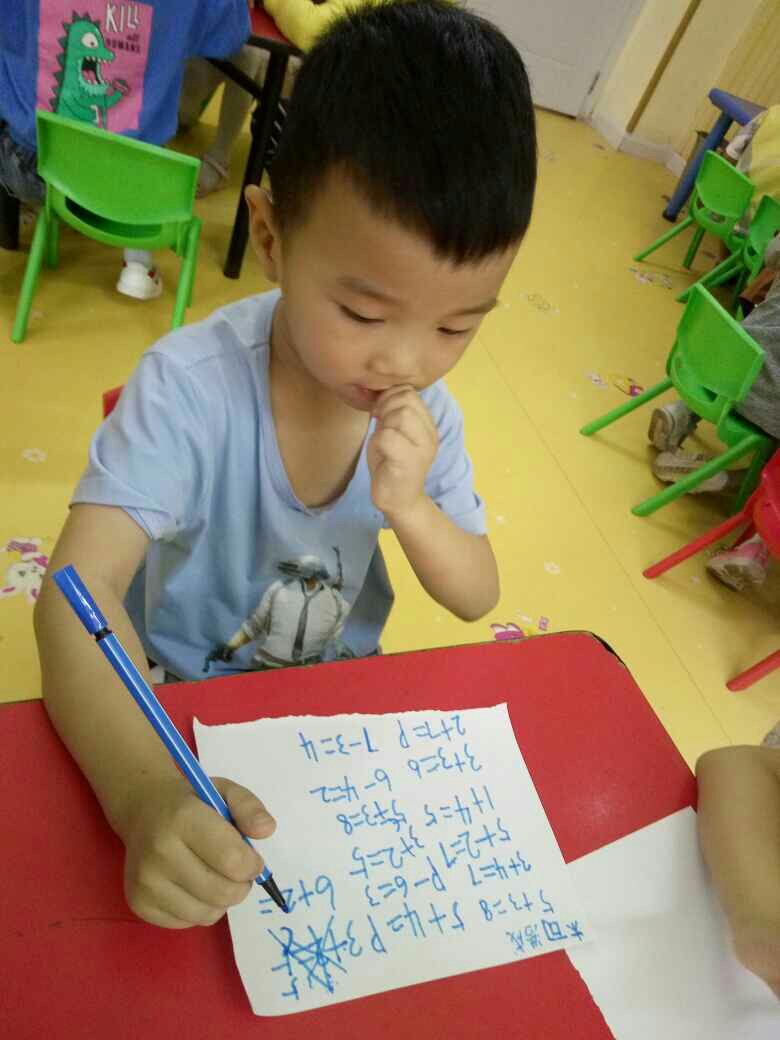 KILL
all
HUMANS
5+3=8
3+4=7
5+2=7
1+4=5
3+3=6
2+7=9
5+4=9
9-6=3
3+2=5
5+3=8
6-4=2
7-3=4
6+2=